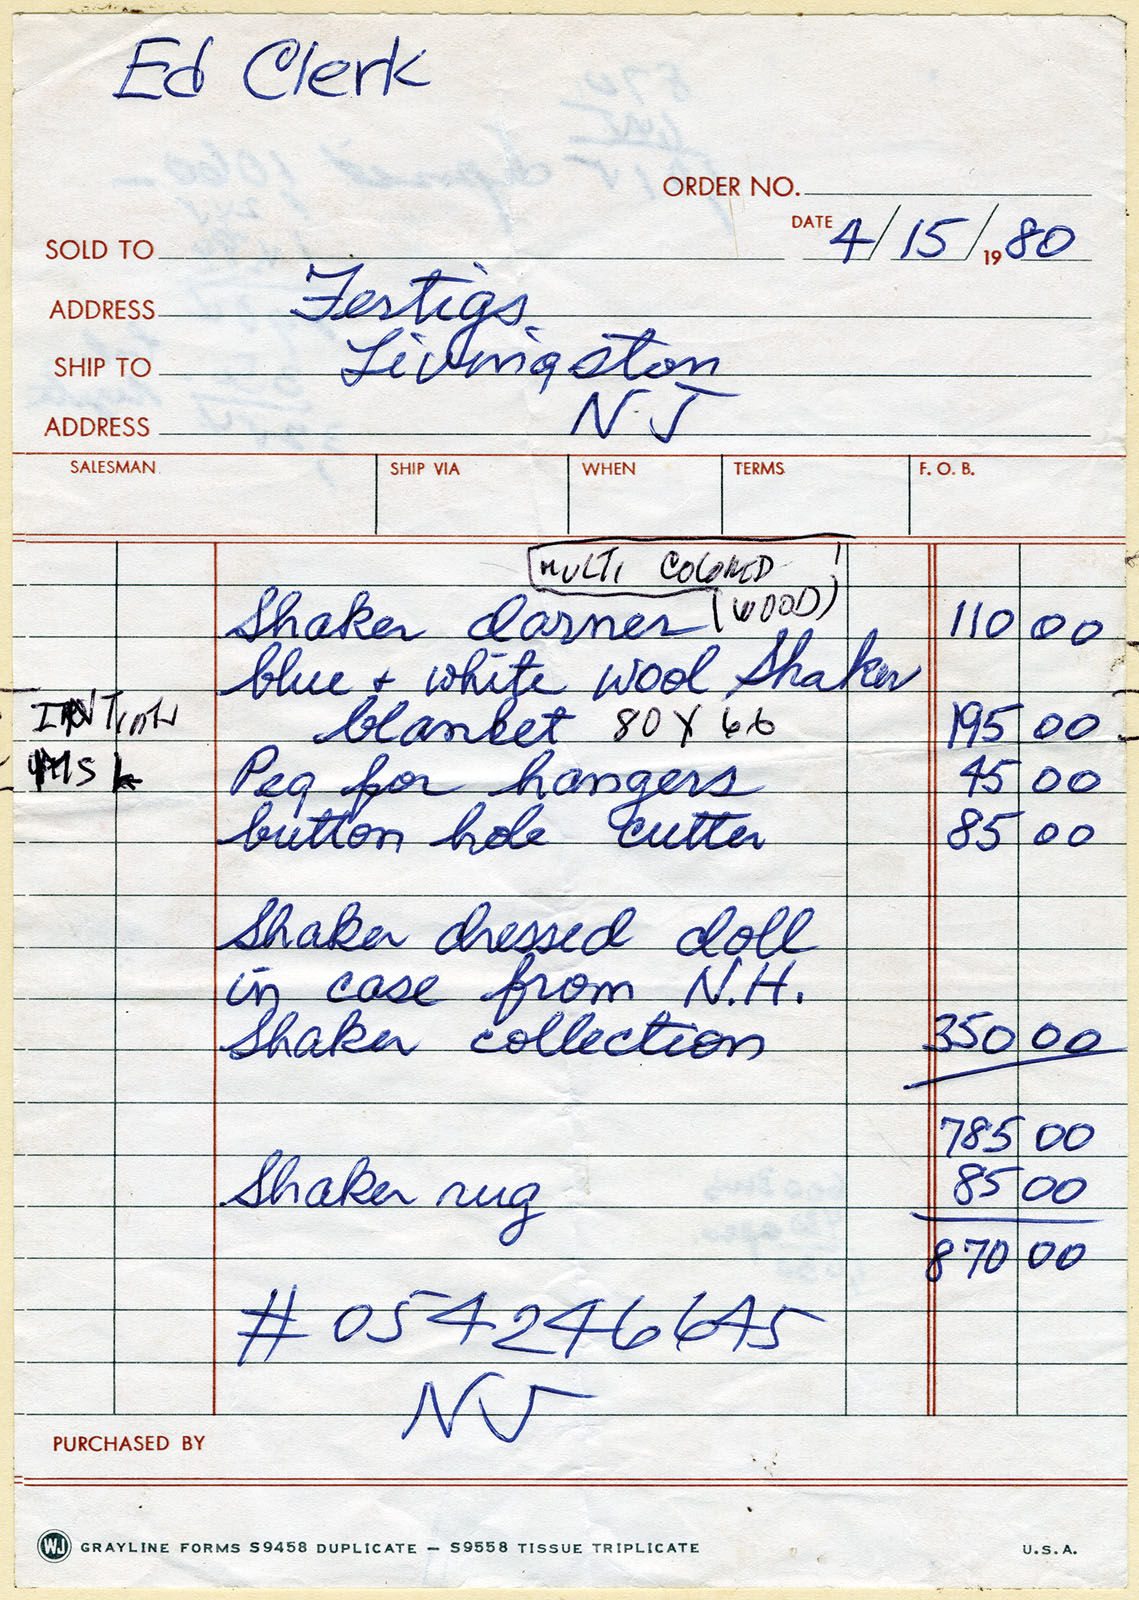 Ed Clerk
ORDER NO.
DATE 4/15/1980
SOLD TO
ADDRESS Fertigs
SHIP TO Livingston
ADDRESS NJ
SALESMAN SHIP VIA WHEN TERMS F. O. B.
MULTI COLORED
Shaker darner (WOOD) 110 00
blue + white wool Shaker
blanket 80 X 66 195 00
Peg for hangers 45 00
button hole cutter 85 00
Shaker dressed doll
in case from N.H.
Shaker collection 350 00
785 00
Shaker rug 85 00
870 00
# 054246645
NJ
PURCHASED BY
WJ GRAYLINE FORMS S9458 DUPLICATE — S9558 TISSUE TRIPLICATE U.S.A.